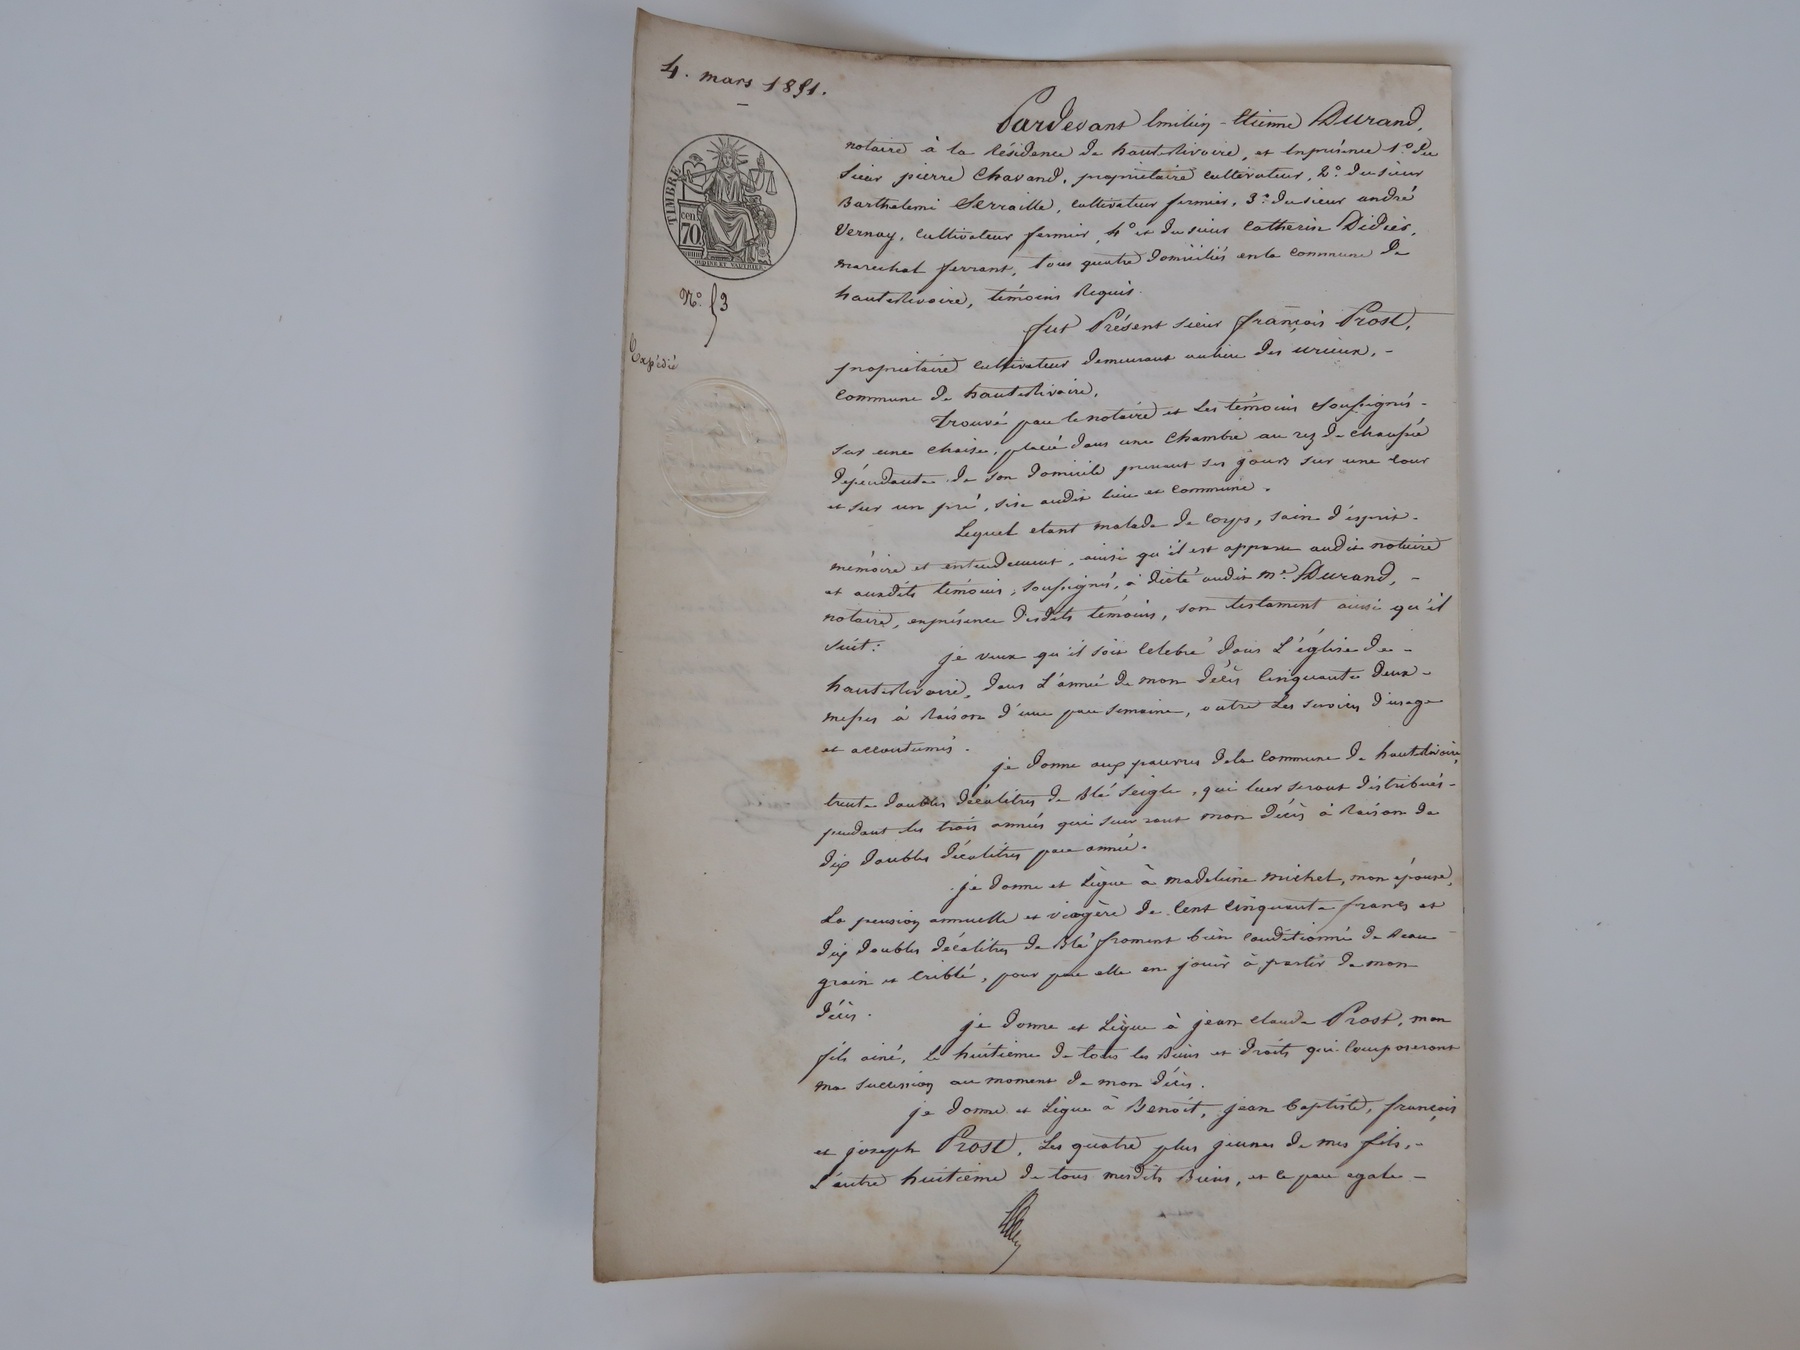 4. mars 1851.
TIMBRE
cen 70
ORDINE ET VAUTHIER
N.° 53
Expédié
Pardevant Emilien-Etienne Durand,
notaire à la résidence de hauterivoire, et enprésence 1.° du
sieur pierre Chavand, propriétaire cultivateur, 2.° du sieur
Barthelemi Serraille, cultivateur fermier, 3.° du sieur andré
Vernay, cultivateur fermier, 4.° et du sieur Catherin Didier,
marechal ferrant, tous quatre domiciliés en la commune de
hauterivoire, témoins Requis.
fut Présent sieur françois Prost,
propriétaire cultivateur demeurant au lieu des urieux, -
commune de hauterivoire,
trouvé par le notaire et les témoins soussignés -
sur une chaise, placé dans une chambre au rez de chaussée
dépendante de son domicile prenant ses jours sur une cour
et sur un pré, sise audit lieu et commune.
Lequel etant malade de corps, sain d'esprit -
mémoire et entendement, ainsi qu'il est apparu audit notaire
et auxdits témoins, soussignés, a dicté audit m.e Durand, -
notaire, enprésence desdits témoins, son testament ainsi qu'il
suit:
je veux qu'il soit celebré dans L'église de -
hauterivoire, dans L'année de mon décès cinquante deux -
messes à Raison d'une par semaine, outre Les services d'usage
et accoutumés.
je donne aux pauvres dela commune de hauterivoire,
trente doubles décalitres de Blé seigle, qui leur seront distribués -
pendant les trois années qui suivront mon décès à Raison de
dix doubles décalitres par année.
je donne et Lègue à madeleine michel, mon épouse,
La pension annuelle et viagère de cent cinquante francs et
dix doubles décalitres de Blé froment bien conditionné de Beau
grain et criblé, pour par elle en jouir à partir de mon
décès.
je donne et Lègue à jean claude Prost, mon
fils ainé, le huitieme de tous les Biens et droits qui composeront
ma succession au moment de mon décès.
je donne et Lègue à Benoit, jean Baptiste, françois
et joseph Prost, Les quatre plus jeunes de mes fils, -
L'autre huitieme de tous mesdits Biens, et ce par egale -